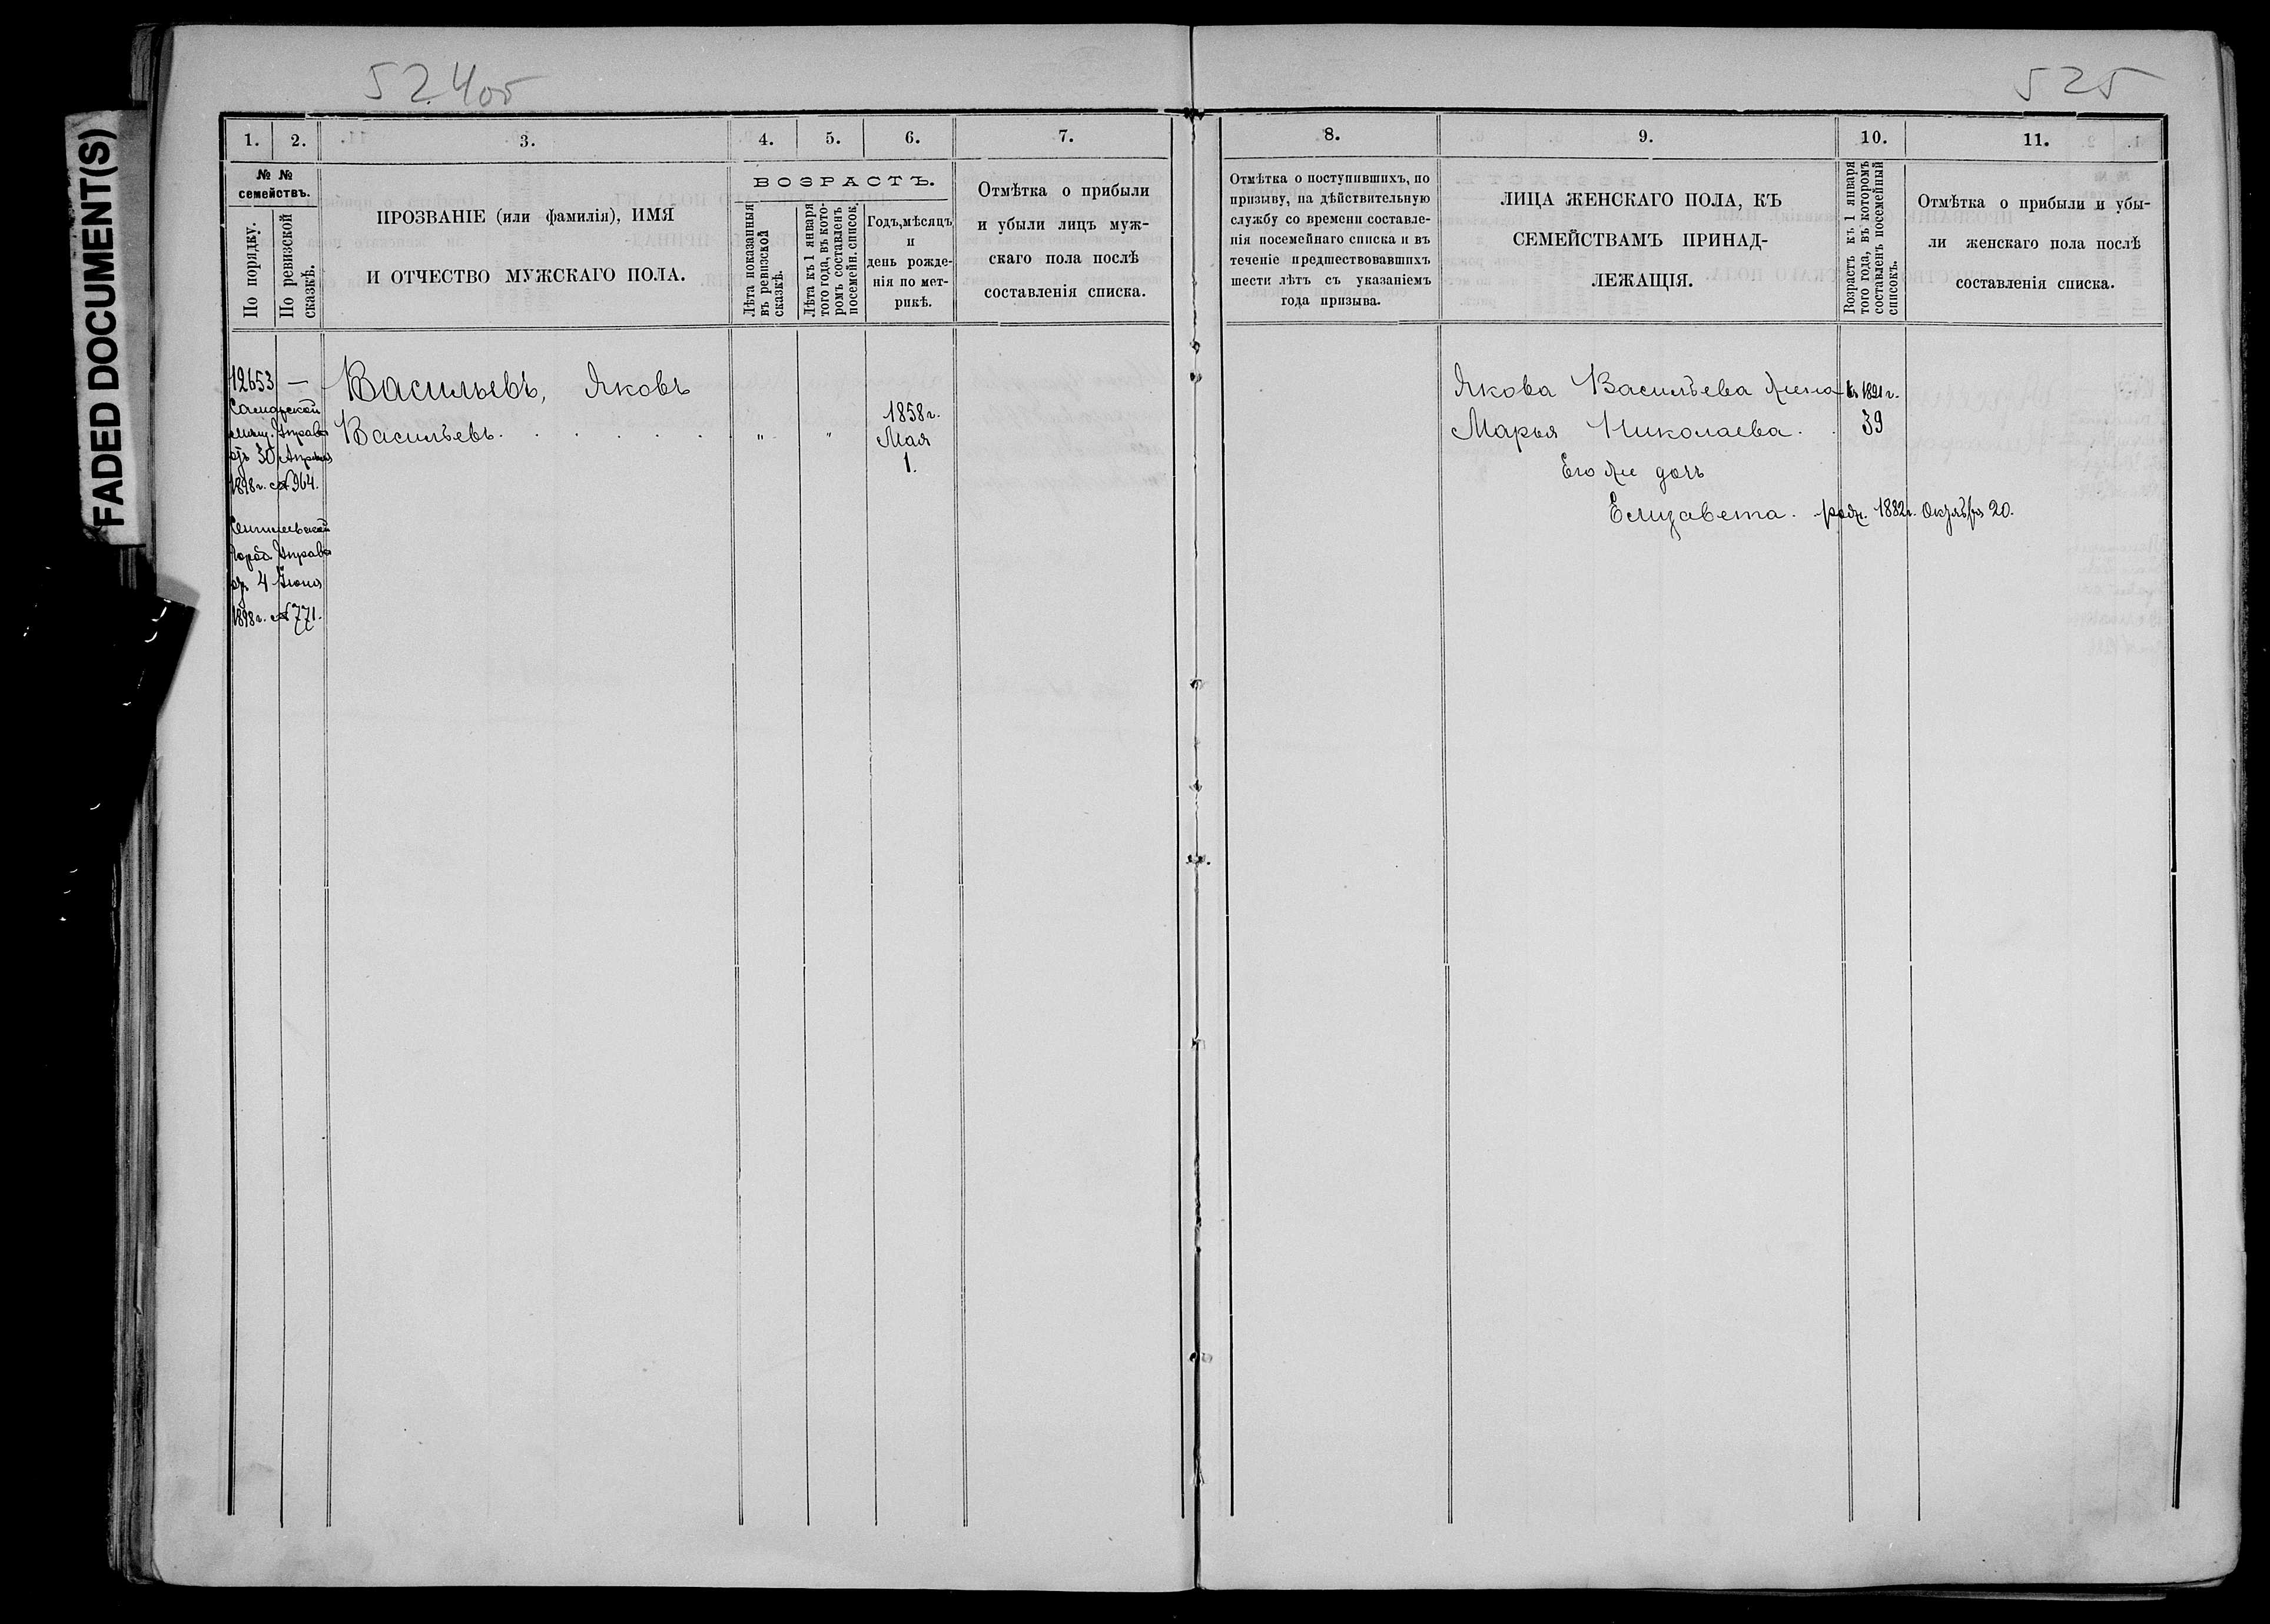 FADED DOCUMENT(S)
524об
525
1. 2. 3. 4. 5. 6. 7.
№ №
семействъ.
По порядку.
По ревизской
сказкѣ.
ПРОЗВАНІЕ (или фамилія), ИМЯ
И ОТЧЕСТВО МУЖСКАГО ПОЛА.
ВОЗРАСТЪ.
Лѣта показанныя
въ ревизской
сказкѣ.
Лѣта къ 1 января
того года, въ кото-
ромъ составленъ
посемейн. список.
Годъ, мѣсяцъ
и
день рожде-
нія по мет-
рикѣ.
Отмѣтка о прибыли
и убыли лицъ муж-
скаго пола послѣ
составленія списка.
12653 —
Самарской
мѣщ. Управы
отъ 30 Апрѣля
1898 г. № 964.
Город. Управы
отъ 4 Іюня
1898 г. № 771.
Васильевъ, Яковъ
Васильевъ . . . . . .
" "
1858 г.
Мая
1.
8. 9. 10. 11.
Отмѣтка о поступившихъ, по
призыву, на дѣйствительную
службу со времени составле-
нія посемейнаго списка и въ
теченіе предшествовавшихъ
шести лѣтъ съ указаніемъ
года призыва.
ЛИЦА ЖЕНСКАГО ПОЛА, КЪ
СЕМЕЙСТВАМЪ ПРИНАД-
ЛЕЖАЩІЯ.
Возрастъ къ 1 января
того года, въ которомъ
составленъ посемейный
списокъ.
Отмѣтка о прибыли и убы-
ли женскаго пола послѣ
составленія списка.
Якова Васильева жена къ 1891 г.
Марья Николаева. . 39
Его же дочь
Елизавета. . родж. 1882 г. Октября 20.